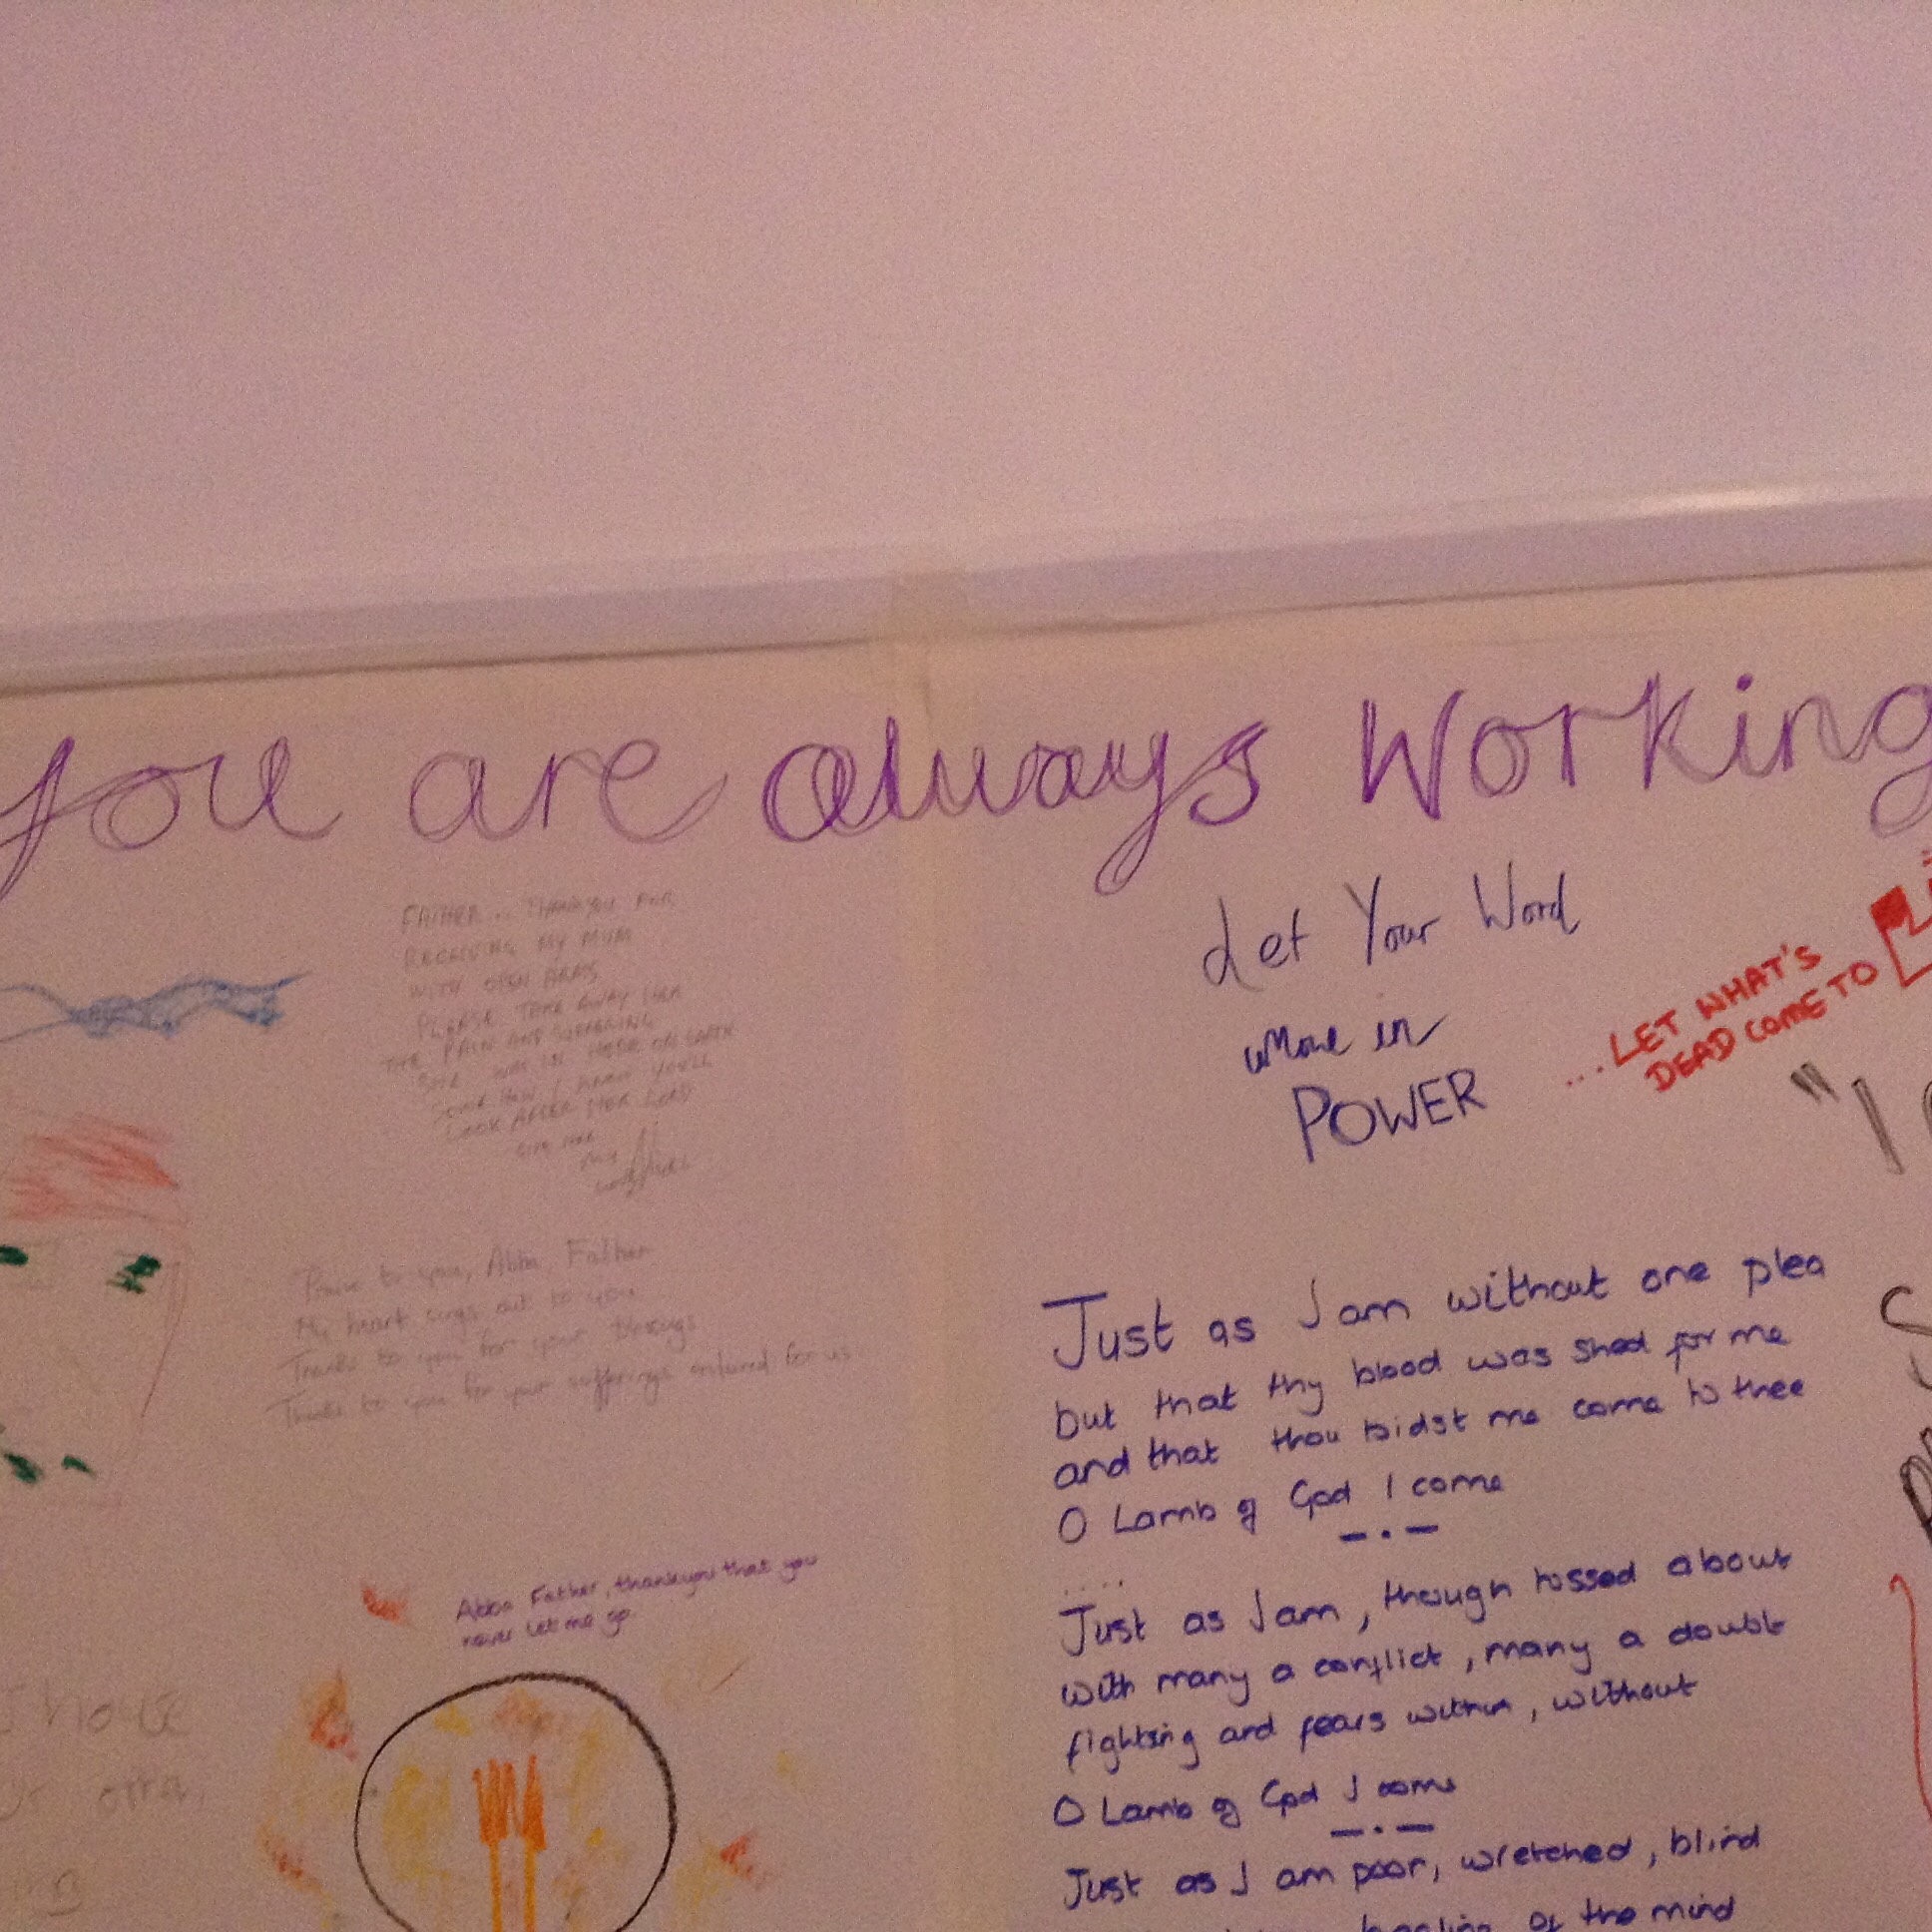 you are always working
FATHER.. THANKYOU FOR
RECEIVING MY MUM
WITH OPEN ARMS
PLEASE TAKE AWAY HER
THE PAIN AND SUFFERING
SHE WAS IN HERE ON EARTH
SOME HOW I KNOW YOU'LL
LOOK AFTER HER LORD
GIVE HER
MY
Praise to you, Abba, Father
My heart sings out to you
Thanks to you for your blessings
Thanks to you for your sufferings endured for us
Abba Father, thankyou that you
never let me go
I have
Let Your Word
Move in
POWER
...LET WHAT'S
DEAD COME TO
Just as I am without one plea
but that thy blood was shed for me
and that thou bidst me come to thee
O Lamb of God I come
....
Just as I am, though tossed about
with many a conflict, many a doubt
fighting and fears within, without
O Lamb of God I come
Just as I am poor, wretched, blind
healing of the mind